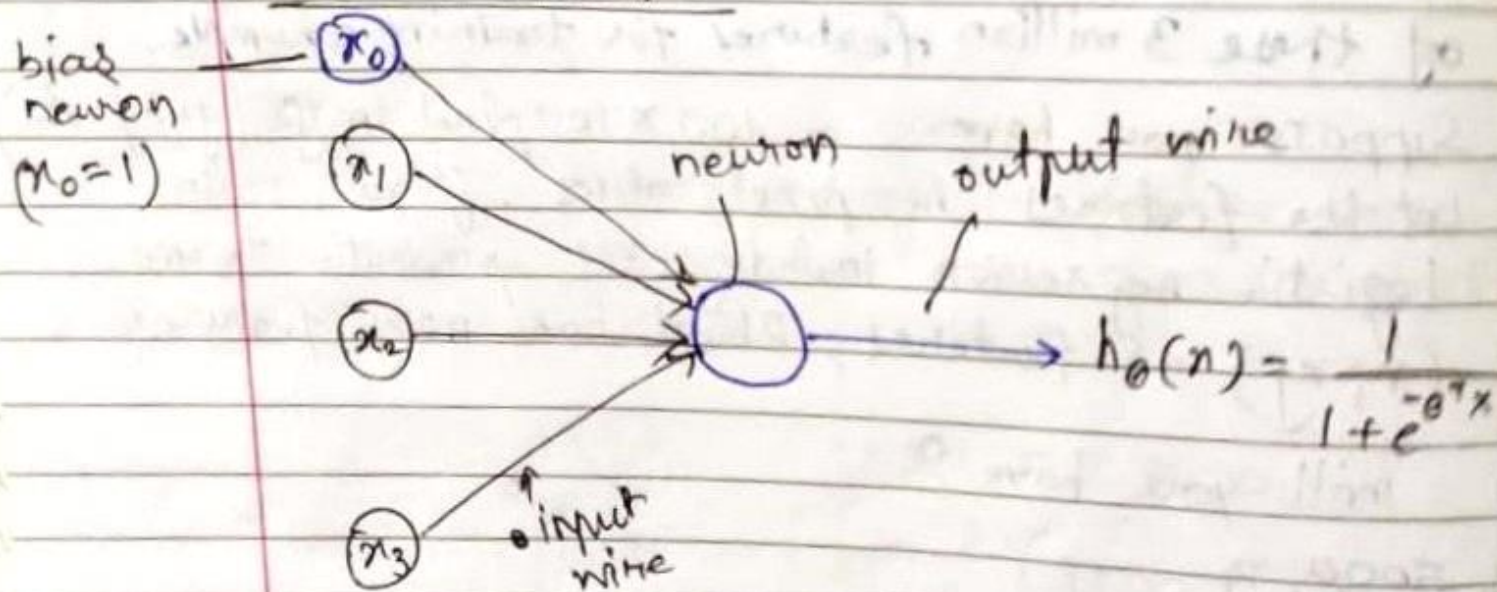 bias
neuron
(x₀=1)
x₀
x₁
x₂
x₃
neuron
output wire
input
wire
h_θ(x) = 1 / (1 + e^(-θᵀx))